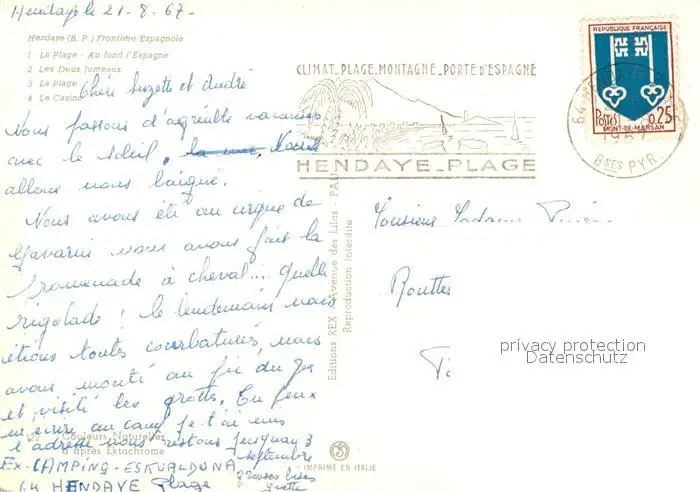 Hendaye le 21-8-67-
Hendaye (B. P.) Frontière Espagnole
1 La Plage - Au fond l'Espagne
2 Les Deux Jumeaux
3 La Plage
4 Le Casino
Chère Suzette et André
Nous passons d'agréable vacances
avec le soleil. la mer. Nous
allons nous baigné.
Nous avons été au cirque de
Gavarni nous avons fait la
promenade à cheval.... quelle
rigolade! le lendemain nous
étions toutes courbaturés, nous
avons monté au pic du ger
et visité les grottes. Tu peux
m'écrire au camp je t'ai mis
l'adresse nous restons jusqu'au 3
septembre
Couleurs Naturelles
d'après Ektachrome
Ex-CAMPING-ESKUALDUNA
64 HENDAYE Plage
grosses bises
Yvette
CLIMAT_PLAGE_MONTAGNE_PORTE D'ESPAGNE
HENDAYE_PLAGE
Editions REX - Avenue des Lilas - PAU
Reproduction Interdite
IMPRIMÉ EN ITALIE
REPUBLIQUE FRANÇAISE
POSTES 0,25
MONT-DE-MARSAN
64
1967
BSES PYR.
Monsieur Madame
Routtes
privacy protection
Datenschutz